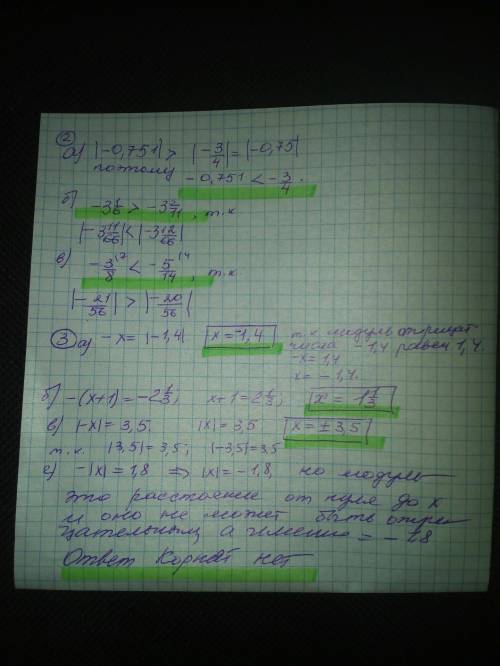 2
а) |-0,751| > |-3/4| = |-0,75|
поэтому -0,751 < -3/4.
б) -3 1/6 > -3 2/11, т.к
|-3 11/66| < |-3 12/66|
в) -3/8 < -5/14, т.к
|-21/56| > |-20/56|
3 а) -x = |-1,4| x = -1,4 т.к. модуль отрицат
числа -1,4 равен 1,4.
-x = 1,4
x = -1,4.
б) -(x+1) = -2 1/3; x+1 = 2 1/3; x = 1 1/3
в) |-x| = 3,5. |x| = 3,5 x = ± 3,5
т.к. |3,5| = 3,5; |-3,5| = 3,5
г) -|x| = 1,8 ⇒ |x| = -1,8, но модуль
это расстояние от нуля до x
и оно не может быть отри
цательным а именно = -1,8
Ответ Корней нет